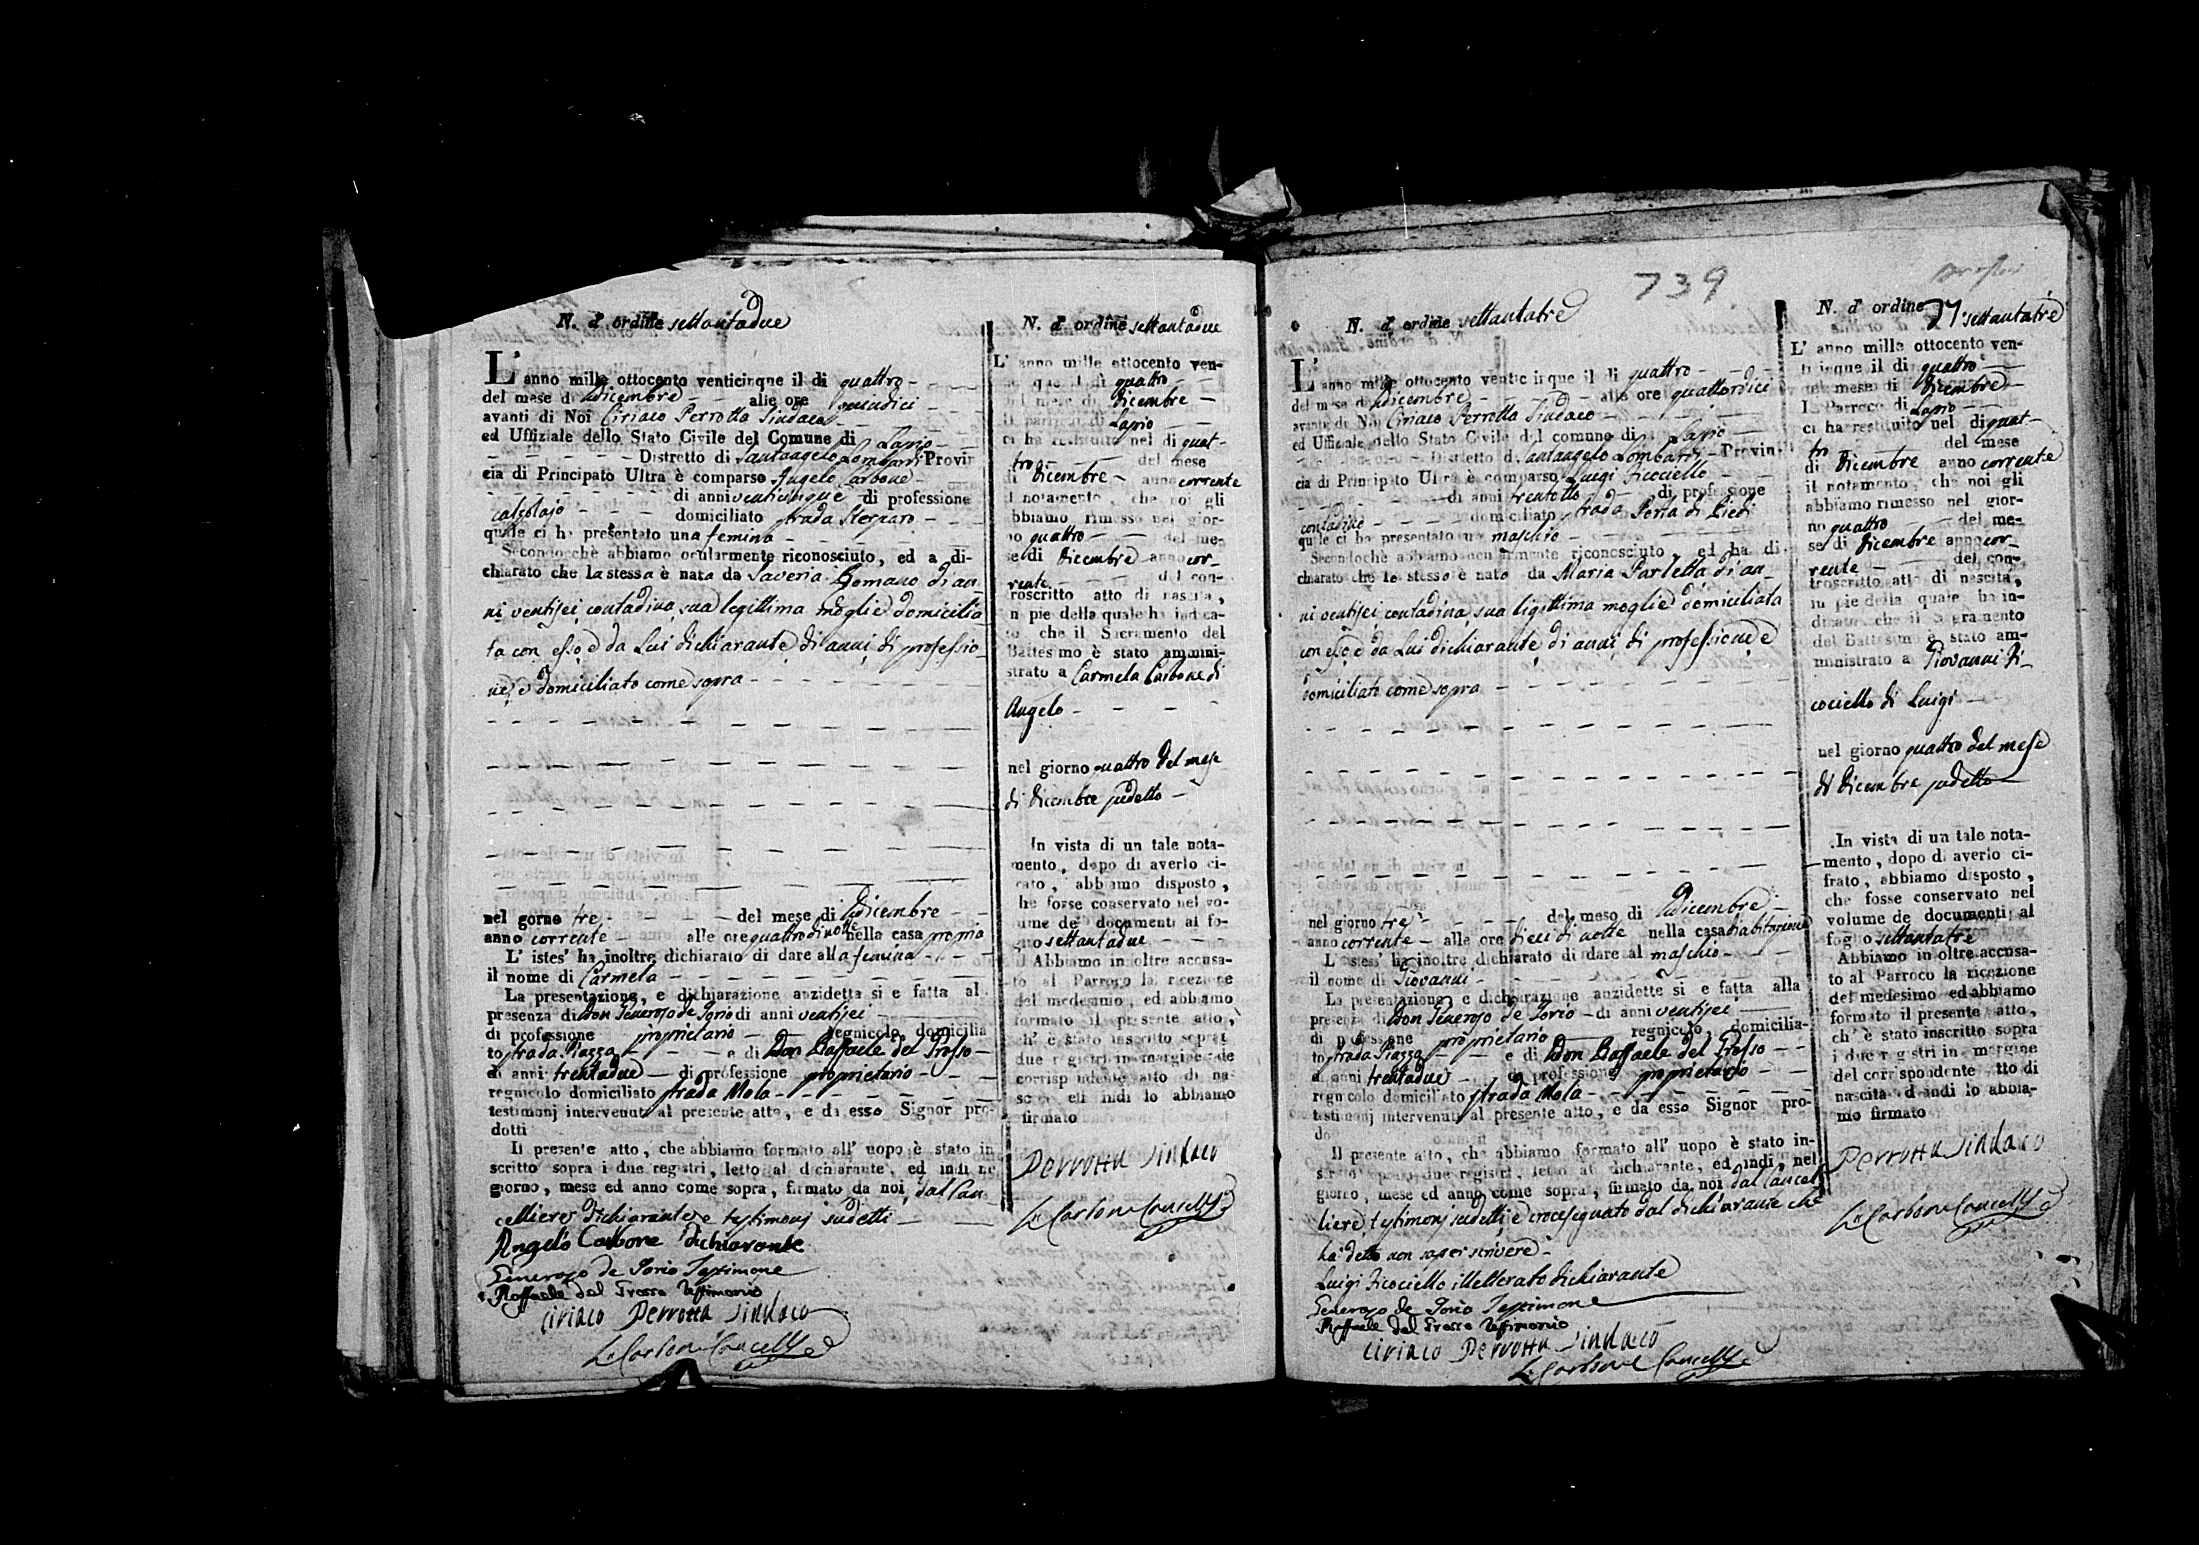 N. d' ordine settantadue
L' anno mille ottocento venticinque il di quattro
del mese di Xdicembre alle ore quindici
avanti di Noi Ciriaco Perrotta Sindaco
ed Uffiziale dello Stato Civile del Comune di Lapio
Distretto di Santangelo Lombardi Provin
cia di Principato Ultra è comparso Angelo Carbone
di anni venticinque di professione
calzolajo domiciliato strada
quale ci ha presentato una femina
Secondocchè abbiamo ocularmente riconosciuto, ed a di-
chiarato che la stessa è nata da Saveria Romano di an
ni ventisei contadina sua legittima moglie domicilia
ta con esso e da Lui dichiarante di anni di professio
ne, e domiciliato come sopra
nel gorno tre del mese di Xdicembre
anno corrente alle ore quattro di notte nella casa propria
L' istes' ha inoltre dichiarato di dare alla femina
il nome di Carmela
La presentazione, e dichiarazione anzidetta si e fatta al
presenza di Don Generoso de Iorio di anni ventisei
di professione proprietario regnicolo, domicilia
to strada Piazza e di Don Raffaele del Grosso
di anni trentadue di professione proprietario
regnicolo domiciliato strada Mola
testimonj intervenuti al presente atto, e da esso Signor pro-
dotti
Il presente atto, che abbiamo formato all' uopo è stato in
scritto sopra i due registri, letto al dichiarante, ed indi ne
giorno, mese ed anno come sopra, firmato da noi, dal Can
celliere dichiarante e testimonj sudetti
Angelo Carbone dichiarante
Generoso de Iorio Testimone
Raffaele del Grosso Testimonio
Ciriaco Perrotta Sindaco
Carbone Cancell
N. d' ordine settantadue
L' anno mille ottocento ven-
que il di quattro
del mese di Dicembre
Il parroco di Lapio
ci ha restituito nel di quat-
tro del mese
di Dicembre anno corrente
il notamento, che noi gli
abbiamo rimesso nel gior-
no quattro del me-
se di Dicembre anno cor-
rente del con-
troscritto atto di nascita,
in pie della quale ha indica-
to che il Sacramento del
Battesimo è stato ammini-
strato a Carmela Carbone di
Angelo
nel giorno quattro del mese
di Dicembre sudetto
In vista di un tale nota-
mento, dopo di averlo ci-
frato, abbiamo disposto,
che fosse conservato nel vo-
lume de' documenti al fo-
glio settantadue
Abbiamo inoltre accusa-
to al Parroco la ricezione
del medesimo, ed abbiamo
formato il presente atto,
ch' è stato inscritto sopra
due registri in margine de
corrispondente atto di na-
scita ed indi lo abbiamo
firmato
Perrotta Sindaco
Carbone Cancell
739
N. d' ordine settantatre
L' anno mille ottocento venticinque il di quattro
del mese di Xdicembre alle ore quattordici
avanti di Noi Ciriaco Perrotta Sindaco
ed Ufficiale dello Stato Civile del comune di Lapio
Distretto di Santangelo Lombardi Provin
cia di Principato Ultra è comparso Luigi Ficociello
di anni trentotto di professione
contadino domiciliato strada Porta di Piedi
quale ci ha presentato un maschio
Secondochè abbiamo ocularmente riconosciuto, ed ha di
chiarato che lo stesso è nato da Maria Parletta di an
ni ventisei contadina, sua ligittima moglie domiciliata
con esso e da Lui dichiarante di anni, di professione e
domiciliato come sopra
nel giorno tre del mese di Xdicembre
anno corrente alle ore dieci di notte nella casa d'abitazione
L' istess' ha inoltre dichiarato di dare al maschio
il nome di Giovanni
La presentazione, e dichiarazione anzidette si e fatta alla
presenza di Don Generoso de Iorio di anni ventisei
di professione proprietario regnicolo, domicilia-
to strada Piazza e di Don Raffaele del Grosso
di anni trentadue di professione proprietario
regnicolo domiciliato strada Mola
testimonj intervenuti al presente atto, e da esso Signor pro-
do
Il presente atto, che abbiamo formato all' uopo è stato in-
scritto sopra i due registri, letto al dichiarante, ed indi, nel
giorno, mese ed anno come sopra, firmato da noi dal Cancel
liere, testimonj sudetti, e crocesegnato dal dichiarante che
ha detto non saper scrivere
Luigi Ficociello illetterato dichiarante
Generoso de Iorio Testimone
Raffaele del Grosso Testimonio
Ciriaco Perrotta Sindaco
Carbone Cancell
N. d' ordine settantatre
L' anno mille ottocento ven-
ticinque il di quattro
del mese di Dicembre
Il Parroco di Lapio
ci ha restituito nel di quat-
tro del mese
di Dicembre anno corrente
il notamento, che noi gli
abbiamo rimesso nel gior-
no quattro del me-
se di Dicembre anno cor-
rente del con-
troscritto atto di nascita,
in pie della quale ha in-
dicato che il Sagramento
del Battesimo è stato am-
ministrato a Giovanni Fi-
cociello di Luigi
nel giorno quattro del mese
di Dicembre sudetto
In vista di un tale nota-
mento, dopo di averlo ci-
frato, abbiamo disposto,
che fosse conservato nel
volume de documenti al
foglio settantatre
Abbiamo in oltre accusa-
to al Parroco la ricezione
del medesimo ed abbiamo
formato il presente atto,
ch' è stato inscritto sopra
i due registri in margine
del corrispondente atto di
nascita ed indi lo abbia-
mo firmato
Perrotta Sindaco
Carbone Cancell